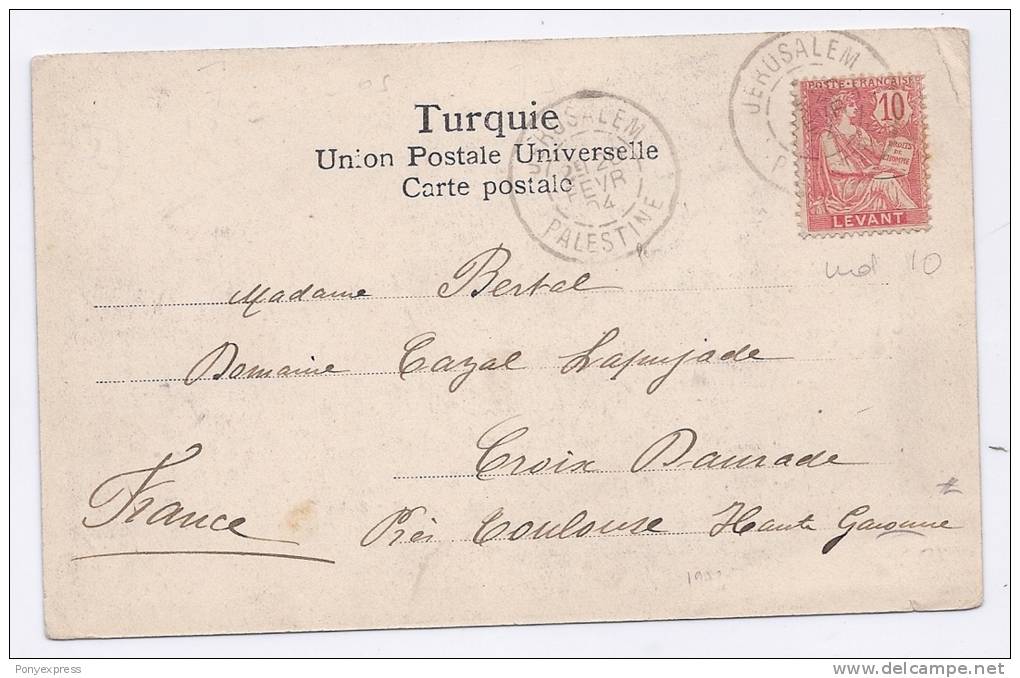 Turquie
Union Postale Universelle
Carte postale
JÉRUSALEM
FEVR
04
PALESTINE
JÉRUSALEM
POSTE FRANÇAISE
10
DROITS
DE
L'HOMME
LEVANT
10
Madame Bertal
Domaine Cazal Lapujade
Croix Daurade
France
Près Toulouse Haute Garonne
Ponyexpress
delcampe.net